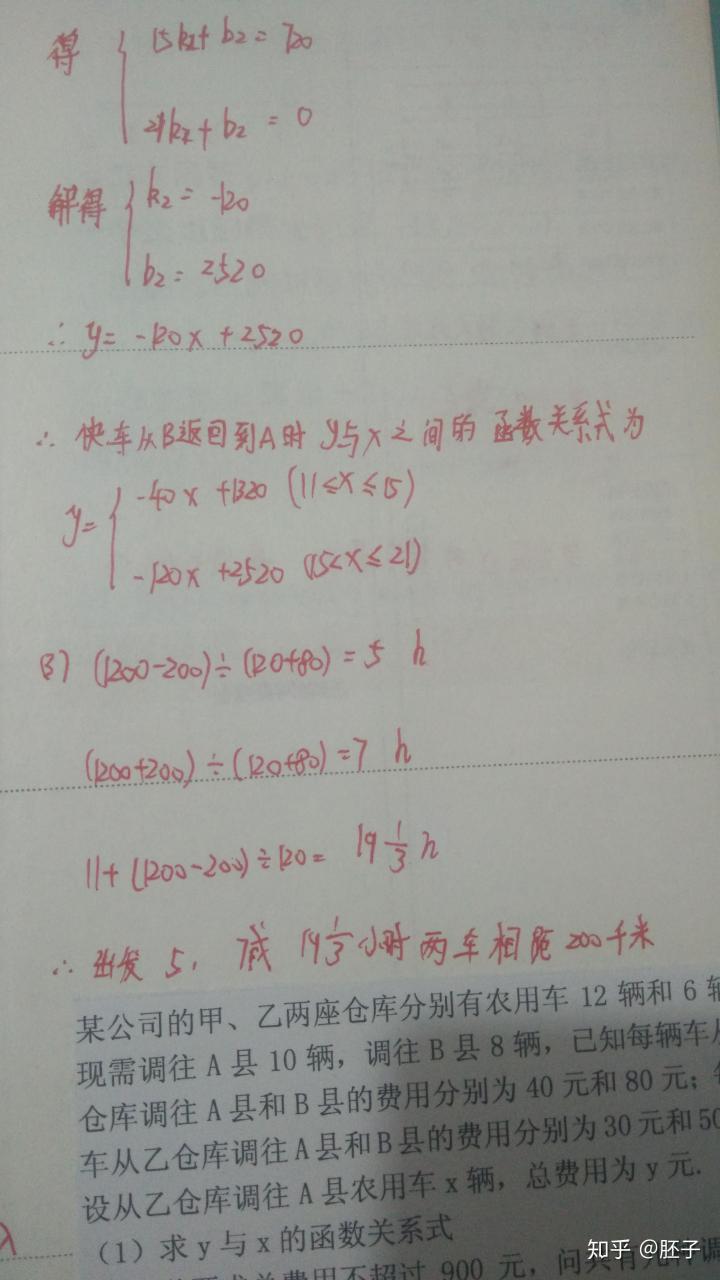 得 { 15k₂+b₂=720
21k₂+b₂=0
解得 { k₂=-120
b₂=2520
∴ y=-120x+2520
∴ 快车从B返回到A时 y与x之间的函数关系式为
y= { -40x+1320 (11≤x≤15)
-120x+2520 (15<x≤21)
(3) (1200-200)÷(120+80)=5 h
(1200+200)÷(120+80)=7 h
11+(1200-200)÷120= 19 1/3 h
∴ 出发 5, 7或 19 1/3 小时两车相距200千米
某公司的甲、乙两座仓库分别有农用车 12 辆和 6
现需调往 A 县 10 辆，调往 B 县 8 辆，已知每辆车从
仓库调往 A 县和 B 县的费用分别为 40 元和 80 元；
车从乙仓库调往A县和B县的费用分别为30元和50
设从乙仓库调往 A 县农用车 x 辆，总费用为 y 元.
（1）求 y 与 x 的函数关系式
总费用不超过 900 元，问共有几种调
知乎 @胚子